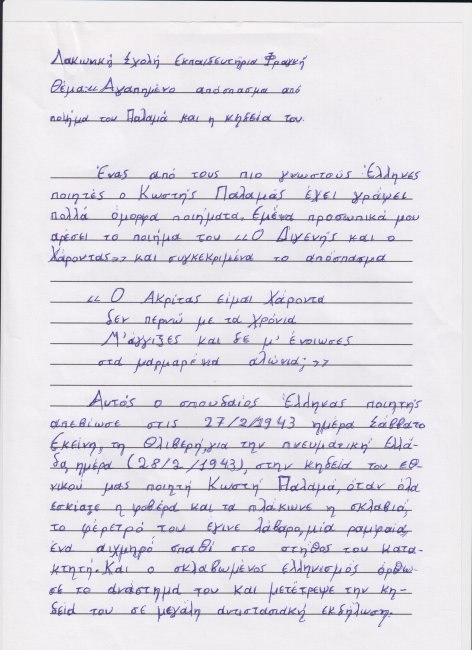 Λακωνική Σχολή Εκπαιδευτήρια Φραγκή
Θέμα:"Αγαπημένο απόσπασμα από
ποίημα του Παλαμά και η κηδεία του.
Ένας από τους πιο γνωστούς Έλληνες
ποιητές ο Κωστής Παλαμάς έχει γράψει
πολλά όμορφα ποιήματα. Εμένα προσωπικά μου
αρέσει το ποίημα του «Ο Διγενής και ο
Χάροντας» και συγκεκριμένα το απόσπασμα
« Ο Ακρίτας είμαι Χάροντα
δεν περνώ με τα χρόνια
Μ' άγγιξες και δε μ' ένοιωσες
στα μαρμαρένια αλώνια; »
Αυτός ο σπουδαίος Έλληνας ποιητής
απεβίωσε στις 27/2/1943 ημέρα Σάββατο
Εκείνη, τη θλιβερή, για την πνευματική Ελλά-
δα, ημέρα (28/2/1943), στην κηδεία του εθ-
νικού μας ποιητή Κωστή Παλαμά, όταν όλα
εσκίαζε η φοβέρα και τα πλάκωνε η σκλαβιά,
το φέρετρό του έγινε λάβαρο, μία ρομφαία,
ένα αιχμηρό σπαθί στο στήθος του κατα-
κτητή. Και ο σκλαβωμένος ελληνισμός όρθω-
σε το ανάστημά του και μετέτρεψε την κη-
δεία του σε μεγάλη αντιστασιακή εκδήλωση.